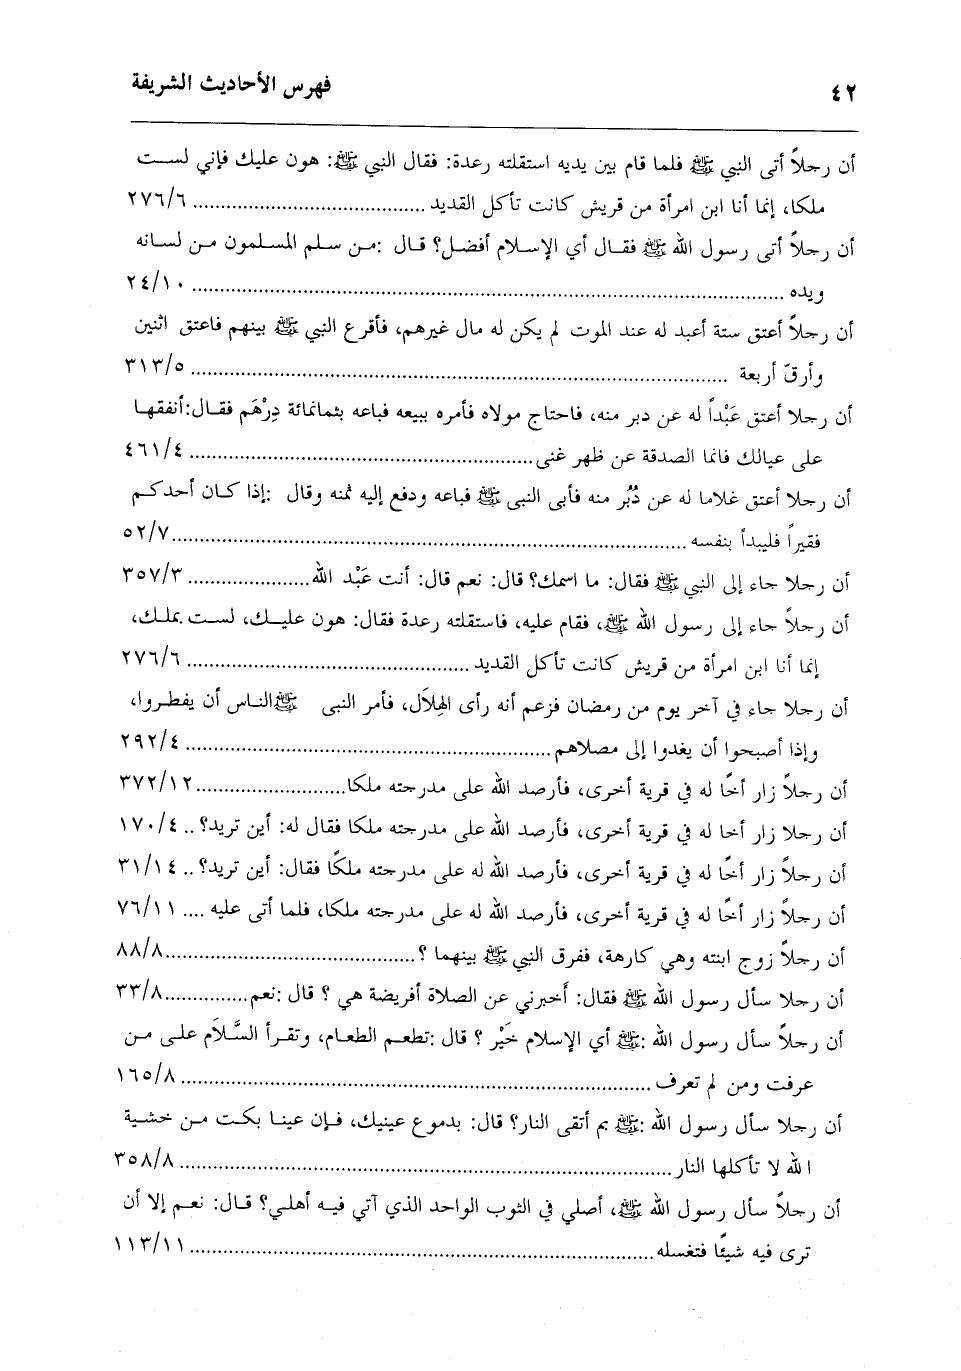 ٤٢ فهرس الأحاديث الشريفة
أن رجلاً أتى النبي ﷺ فلما قام بين يديه استقلته رعدة: فقال النبي ﷺ: هون عليك فإني لست
ملكا، إنما أنا ابن امرأة من قريش كانت تأكل القديد .......... ٢٧٦/٦
أن رجلاً أتى رسول الله ﷺ فقال أي الإسلام أفضل؟ قال :من سلم المسلمون من لسانه
ويده .......... ٢٤/١٠
أن رجلاً أعتق ستة أعبد له عند الموت لم يكن له مال غيرهم، فأقرع النبي ﷺ بينهم فاعتق اثنين
وأرقّ أربعة .......... ٣١٣/٥
أن رجلا أعتق عَبْداً له عن دبر منه، فاحتاج مولاه فأمره ببيعه فباعه بثمانمائة دِرْهَم فقال:أنفقها
على عيالك فانما الصدقة عن ظهر غنى .......... ٤٦١/٤
أن رجلا أعتق غلاما له عن دُبُر منه فأبى النبى ﷺ فباعه ودفع إليه ثمنه وقال :إذا كان أحدكم
فقيراً فليبدأ بنفسه .......... ٥٢/٧
أن رجلا جاء إلى النبي ﷺ فقال: ما اسمك؟ قال: نعم قال: أنت عَبْد الله .......... ٣٥٧/٣
أن رجلاً جاء إلى رسول الله ﷺ، فقام عليه، فاستقلته رعدة فقال: هون عليك، لست بملك،
إنما أنا ابن امرأة من قريش كانت تأكل القديد .......... ٢٧٦/٦
أن رجلا جاء في آخر يوم من رمضان فزعم أنه رأى الهِلاَل، فأمر النبى ﷺالناس أن يفطروا،
وإذا أصبحوا أن يغدوا إلى مصلاهم .......... ٢٩٢/٤
أن رجلاً زار أخًا له في قرية أخرى، فأرصد الله على مدرجته ملكا .......... ٣٧٢/١٢
أن رجلا زار أخا له في قرية أخرى، فأرصد الله على مدرجته ملكا فقال له: أين تريد؟ .. ١٧٠/٤
أن رجلاً زار أخًا له في قرية أخرى، فأرصد الله له على مدرجته ملكًا فقال: أين تريد؟ .. ٣١/١٤
أن رجلاً زار أخًا له في قرية أخرى، فأرصد الله له على مدرجته ملكا، فلما أتى عليه .... ٧٦/١١
أن رجلاً زوج ابنته وهي كارهة، ففرق النبي ﷺ بينهما ؟ .......... ٨٨/٨
أن رجلا سأل رسول الله ﷺ فقال: أَخبرني عن الصلاة أفريضة هي ؟ قال :نعم .......... ٣٣/٨
أن رجلاً سأل رسول الله :ﷺ أي الإسلام خَيْر ؟ قال :تطعم الطعام، وتقرأ السَّلاَم على من
عرفت ومن لم تعرف .......... ١٦٥/٨
أن رجلا سأل رسول الله :ﷺ بم أتقى النار؟ قال: بدموع عينيك، فإن عينا بكت من خشية
الله لا تأكلها النار .......... ٣٥٨/٨
أن رجلاً سأل رسول الله ﷺ، أصلي في الثوب الواحد الذي آتي فيه أهلي؟ قال: نعم إلا أن
ترى فيه شيئًا فتغسله .......... ١١٣/١١